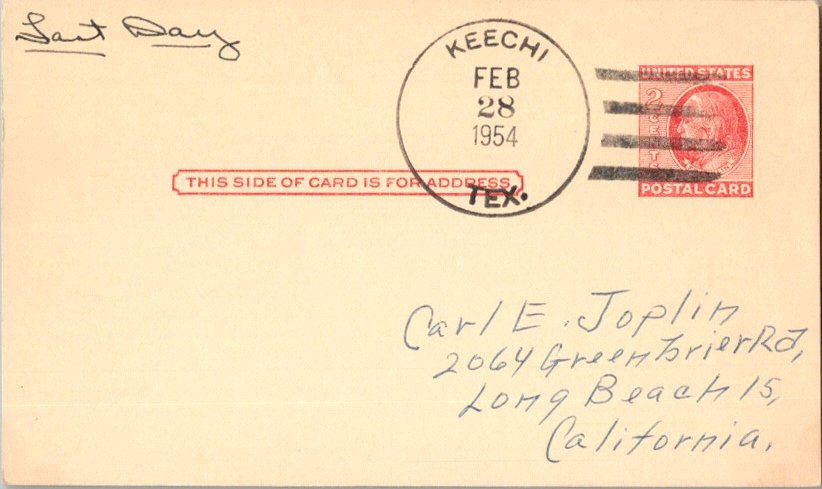 Last Day
KEECHI
FEB
28
1954
TEX.
UNITED STATES
2 CENTS
POSTAL CARD
THIS SIDE OF CARD IS FOR ADDRESS
Carl E. Joplin
2064 Greenbrier Rd,
Long Beach 15,
California.